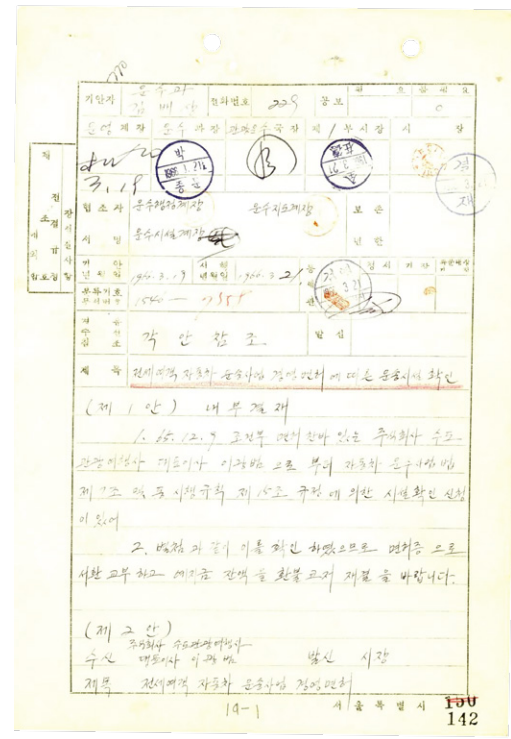 기안자 운수과 전화번호 229 공보
운영계장 운수과장 관광운수국장 제1부시장 시장
3.19
협조자 운수행정계장 운수지도계장 보존
서명 운수시설계장 년한
기안년월일 1966. 3. 19 시행년월일 1966. 3. 21.
분류기호 문서번호 1540—
경유 수신 참조 각 안 참조 발신
제목 전세여객 자동차 운송사업 경영면허에 따른 운송시설 확인
(제 1 안) 내부결재
1. 65. 12. 9 조건부 면허한바 있는 주식회사 수도
관광여행사 대표이사 이광범으로 부터 자동차 운수사업법
제7조 및 동 시행규칙 제15조 규정에 의한 시설확인 신청
이 있어
2. 별첨과 같이 이를 확인 하였으므로 면허증으로
서환 교부하고 예치금 잔액을 환불코저 재결을 바랍니다.
(제 2 안)
주식회사 수도관광여행사
수신 대표이사 이광범 발신 시장
제목 전세여객 자동차 운송사업 경영면허
19-1 서울특별시
142